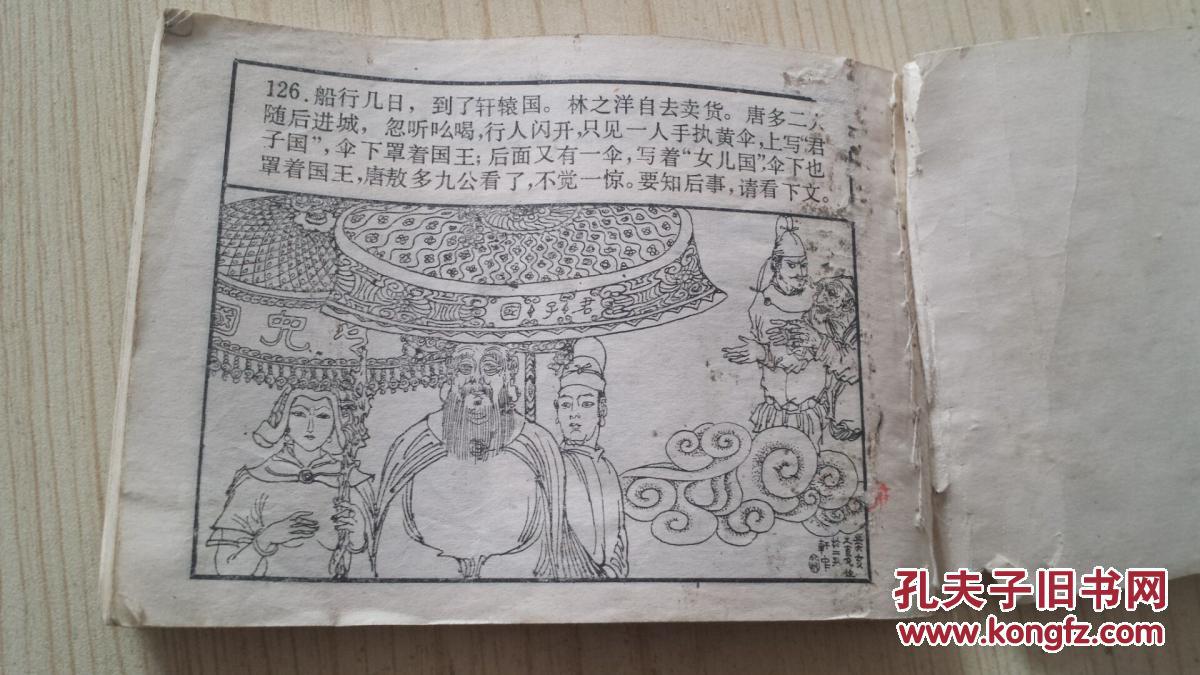 126.船行几日，到了轩辕国。林之洋自去卖货。唐多二人
随后进城，忽听吆喝，行人闪开，只见一人手执黄伞，上写“君
子国”，伞下罩着国王；后面又有一伞，写着“女儿国”，伞下也
罩着国王，唐敖多九公看了，不觉一惊。要知后事，请看下文。
君子國
兒國
孔夫子旧书网
www.kongfz.com